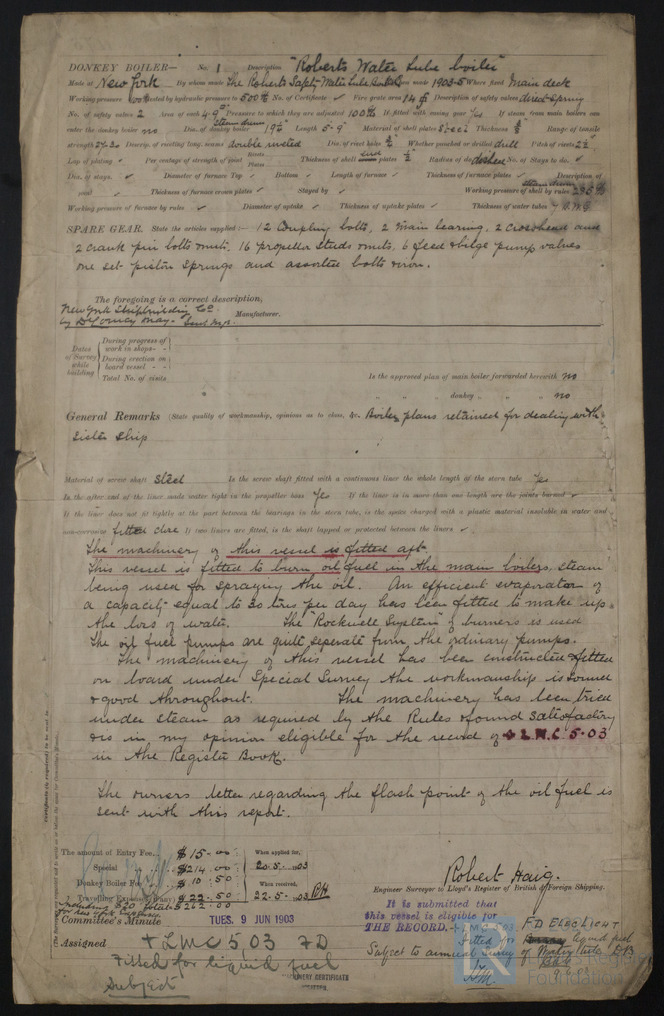 DONKEY BOILER— No. 1 Description "Roberts Water Tube boiler"
Made at New York By whom made The Roberts Safety Water Tube made 1903-5 Where fixed Main deck
Working pressure tested by hydraulic pressure to 500 lbs No. of Certificate ✓ Fire grate area 14 Description of safety valves direct Spring
No. of safety valves 2 Area of each 4.9 Pressure to which they are adjusted 100 lbs If fitted with easing gear Yes If steam from main boilers can
enter the donkey boiler no Dia. of donkey boiler steam drum 19 Length 5-9" Material of shell plates Steel Thickness Range of tensile
strength Descrip. of riveting long. seams double riveted Dia. of rivet holes Whether punched or drilled drill Pitch of rivets
Lap of plating ✓ Per centage of strength of joint Rivets Plates Thickness of shell end plates ½" Radius of do. dished No. of Stays to do. ✓
Dia. of stays. ✓ Diameter of furnace Top ✓ Bottom ✓ Length of furnace ✓ Thickness of furnace plates ✓ Description of
joint ✓ Thickness of furnace crown plates ✓ Stayed by ✓ Working pressure of shell by rules
Working pressure of furnace by rules ✓ Diameter of uptake ✓ Thickness of uptake plates ✓ Thickness of water tubes
SPARE GEAR. State the articles supplied:— 12 Coupling bolts, 2 Main bearing, 2 Crosshead and
2 crank pin bolts & nuts. 16 propeller studs & nuts, 6 feed & bilge pump valves
one set piston springs and assorted bolts & iron.
The foregoing is a correct description,
New York Shipbuilding Co
Manufacturer.
Dates of Survey while building
During progress of work in shops - -
During erection on board vessel - -
Total No. of visits
Is the approved plan of main boiler forwarded herewith no
" " " donkey " " " no
General Remarks (State quality of workmanship, opinions as to class, &c. Boiler plans retained for dealing with
sister ship
Material of screw shaft Steel Is the screw shaft fitted with a continuous liner the whole length of the stern tube Yes
Is the after end of the liner made water tight in the propeller boss Yes If the liner is in more than one length are the joints burned ✓
If the liner does not fit tightly at the part between the bearings in the stern tube, is the space charged with a plastic material insoluble in water and
non-corrosive fitted close If two liners are fitted, is the shaft lapped or protected between the liners ✓
The machinery of this vessel is fitted aft.
This vessel is fitted to burn oil fuel in the main boilers, steam
being used for spraying the oil. An efficient evaporator of
a capacity equal to 30 tons per day has been fitted to make up
the loss of water. The Rockwell System of burners is used
The oil fuel pumps are quite seperate from the ordinary pumps.
The machinery of this vessel has been constructed & fitted
on board under Special Survey the workmanship is sound
& good throughout. The machinery has been tried
under steam as required by the Rules & found satisfactory
& is in my opinion eligible for the record of + L.M.C 5.03
in the Register Book.
The owners letter regarding the flash point of the oil fuel is
sent with this report.
The amount of Entry Fee. $ 15.00 When applied for,
Special $ 214.00 20.5.1903
Donkey Boiler Fee $ 10.50 When received,
Travelling Expenses (if any) $ 22.50 22.5.1903
$ 262.00
Robert Haig.
Engineer Surveyor to Lloyd's Register of British & Foreign Shipping.
Committee's Minute TUES. 9 JUN 1903
It is submitted that
this vessel is eligible for
THE RECORD. + LMC 5.03 FD ELEC LIGHT
Fitted for liquid fuel
Subject to annual survey of
9.6.03
Assigned + LMC 5.03 FD
Fitted for liquid fuel
subject
MACHINERY CERTIFICATE
WRITTEN.
Foundation